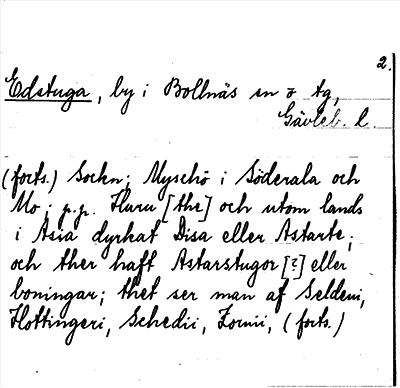 2.
Edstuga, by i Bollnäs sn o tg,
Gävleb. l.
(forts.) Sockn; Myschö i Söderala och
Mo; p.p. Huru [the] och utom lands
i Asia dyrkat Disa eller Astarte;
och ther haft Astarstugor [?] eller
boningar; thet ser man af Seldeni,
Hottingeri, Schedii, Fornii, (forts.)